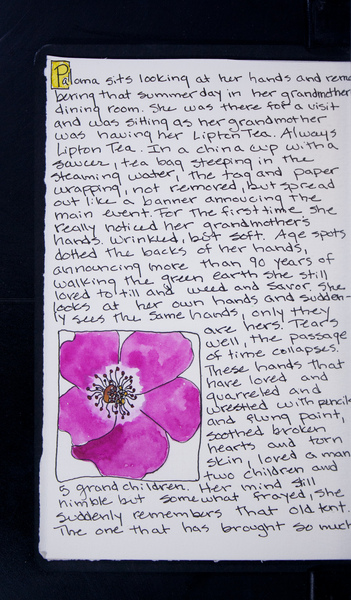 Paloma sits looking at her hands and remem
bering that summer day in her grandmother
dining room. She was there for a visit
and was sitting as her grandmother
was having her Lipton Tea. Always
Lipton Tea. In a china cup with a
saucer, tea bag steeping in the
steaming water, the tag and paper
wrapping, not removed, but spread
out like a banner annoucing the
main event. For the first time she
really noticed her grandmother's
hands. Wrinkled, but soft. Age spots
dotted the backs of her hands,
announcing more than 90 years of
walking the green earth she still
loved to till and weed and savor. She
looks at her own hands and sudden-
ly sees the same hands, only they
are hers. Tears
well, the passage
of time collapses.
These hands that
have loved and
quarreled and
wrestled with pencils
and slung paint,
soothed broken
hearts and torn
skin, loved a man
two children and
5 grandchildren. Her mind still
nimble but somewhat frayed, she
suddenly remembers that old tent.
The one that has brought so much